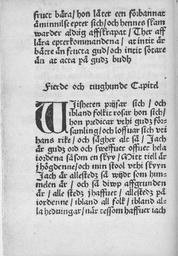 fruct bära/hon läter een sodannat
åminnilse epter sich/och hennes skam
wardher aldrig affskrapat/Ther aff
lära epterkommandena/at intit är
bätre än fructa gud/och intit sötare
än at acta på gudz budh
Fierde och tiughunde Capitel
Wijsheten prijsar sich/och
ibland folkit rosar hon sich/
hon predicar vthi gudz för
samling/och loffuar sich vti
hans rike/och sägher alså/Jach
är gudz ord och sweffuer offuer hela
iordena såsom en sky/Mitt tield är
i högdenne/och min stool vthi skyn
Jach är allestedz så wijde som him=
melen är/och så diwp affgrunden
är/alle stedz i haffuet/allestedz på
iordenne/ibland all folk/ibland al=
la hedningar/när tessom haffuer iach